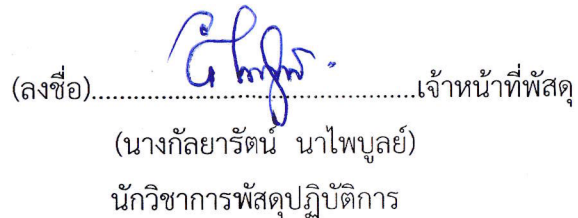 (ลงชื่อ)..................................................เจ้าหน้าที่พัสดุ
(นางกัลยารัตน์ นาไพบูลย์)
นักวิชาการพัสดุปฏิบัติการ